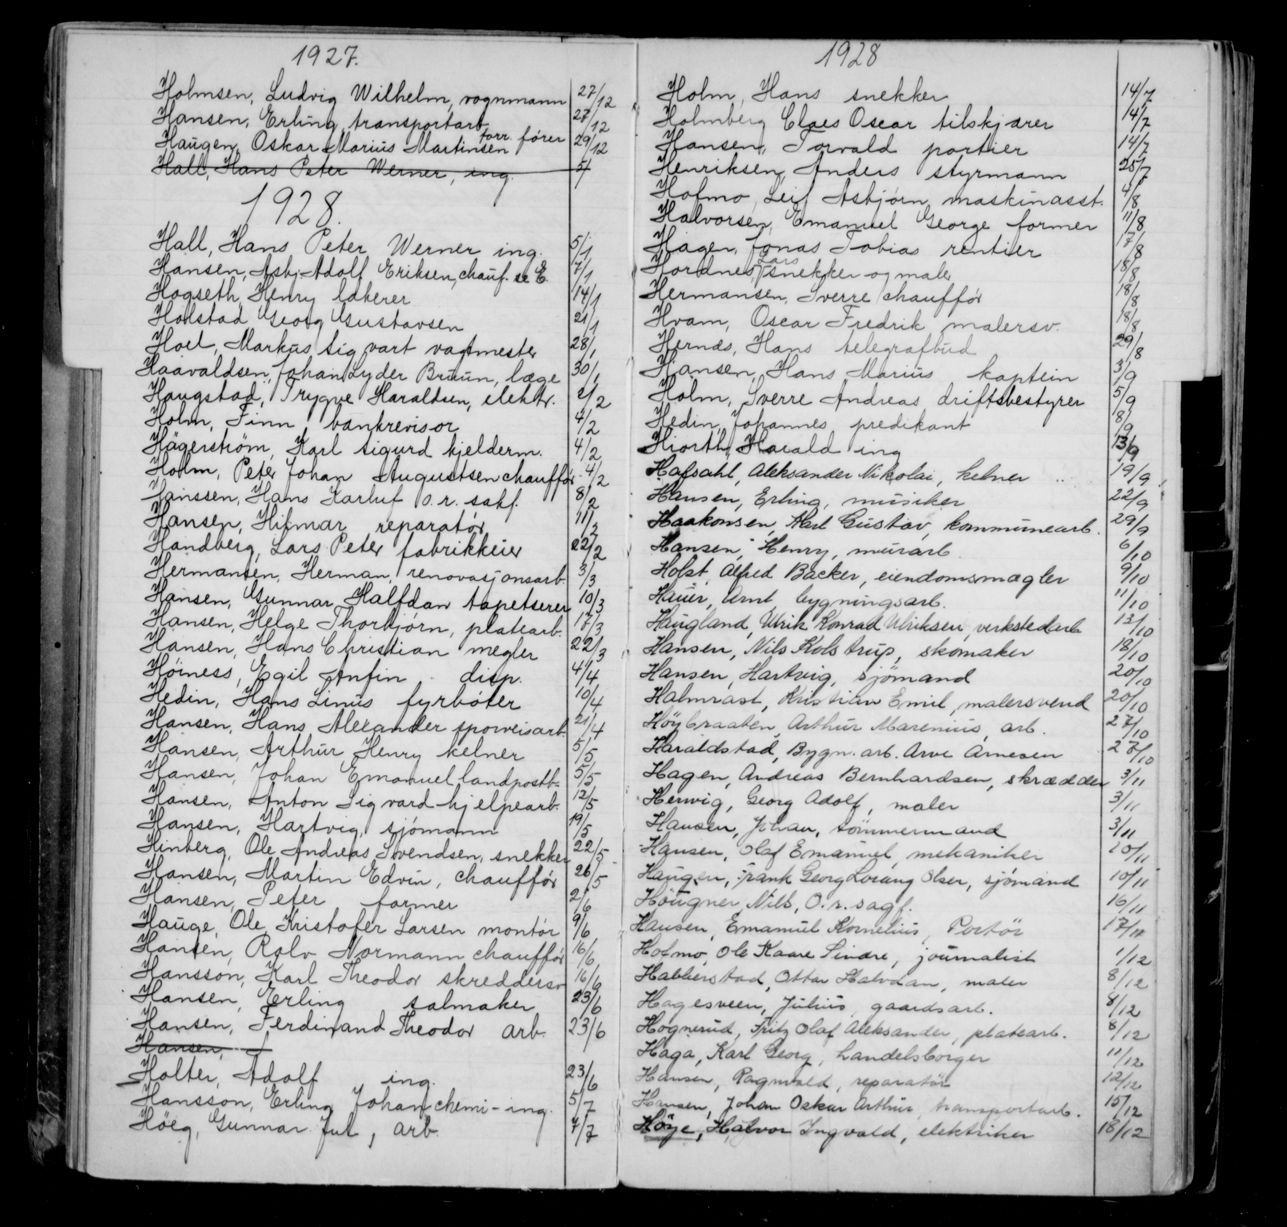 1927.
Holmsen, Ludvig Wilhelm, vognmann 27/12
Hansen, Erling, transportarb. 27/12
Haugen, Oskar Marius Martinsen fører 29/12
Hall, Hans Peter Werner, ing. 5/1
1928.
Hall, Hans Peter Werner ing. 5/1
Hansen, Asbj. Adolf Eriksen, chauf. se E. 7/1
Hogseth Henry lakerer 14/1
Holstad Georg Gustavsen 21/1
Hoel, Markus Sigvart vagtmester 28/1
Haavaldsen, Johan Lyder Bruun, læge 30/1
Haugstad, Trygve Haraldsen, elektr. 2/2
Holm, Finn bankrevisor 4/2
Hägerstrøm, Karl Sigurd kjelderm. 4/2
Holm, Peter Johan Augustsen chauffør 4/2
Hanssen, Hans Karluf o.r. sakf. 8/2
Hansen, Hilmar reparatør 11/2
Handberg, Lars Peter fabrikkeier 22/2
Hermansen, Herman, renovasjonsarb. 3/3
Hansen, Gunnar Halfdan tapetserer 10/3
Hansen, Helge Thorbjørn, platearb. 17/3
Hansen, Hans Christian megler 22/3
Höiness, Egil Anfin disp. 4/4
Hedin, Hans Linus fyrbøter 10/4
Hansen, Hans Alexander sporveisarb. 21/4
Hansen, Arthur Henry kelner 5/5
Hansen, Johan Emanuel landpostb. 5/5
Hansen, Anton Sigvard hjelpearb. 12/5
Hansen, Hartvig, sjömann 19/5
Hinberg, Ole Andreas Svendsen, snekker 22/5
Hansen, Martin Edvin, chauffør 26/5
Hansen, Peter former 2/6
Hauge, Ole Kristofer Larsen montør 9/6
Hansen, Rolv Normann chauffør 16/6
Hansson, Karl Theodor skreddersv. 16/6
Hansen, Erling salmaker 23/6
Hansen, Ferdinand Theodor arb. 23/6
Hansen,
Holter, Adolf ing. 23/6
Hansson, Erling Johan chemi-ing. 5/7
Höeg, Gunnar Juul, arb. 7/7
1928
Holm, Hans snekker 14/7
Holmberg Claes Oscar tilskjærer 14/7
Hansen, Torvald portier 14/7
Henriksen, Anders styrmann 25/7
Holmo, Leif Asbjørn, maskinasst. 4/8
Halvorsen, Emanuel George former 11/8
Hagen, Jonas Tobias rentier 17/8
Hordnes, Lars snekker og maler 18/8
Hermansen, Sverre chauffør 18/8
Hvam, Oscar Fredrik malersv. 18/8
Hernæs, Hans telegrafbud 29/8
Hansen, Hans Marius kaptein 3/9
Holm, Sverre Andreas driftsbestyrer 5/9
Hedin, Johannes, predikant 8/9
Hjorth, Harald ing 13/9
Hafsahl, Aleksander Nikolai, kelner 19/9
Hansen, Erling, musiker 22/9
Haakonsen, Karl Gustav, kommunearb. 29/9
Hansen, Henry, murarb. 6/10
Holst, Alfred Backer, eiendomsmægler 9/10
Huur, Arnt bygningsarb. 11/10
Haugland, Ulrik Konrad Ulriksen verkstedarb. 13/10
Hansen, Nils Kolstrup, skomaker 18/10
Hansen, Hartvig, sjömand 20/10
Halmrast, Kristian Emil, malersvend 20/10
Höybraaten, Arthur Marenius, arb. 27/10
Haraldstad, Bygn. arb. Arve Arnesen 27/10
Hagen, Andreas Bernhardsen, skrædder 3/11
Herwig, Georg Adolf, maler 3/11
Hansen, Johan, tömmermand 3/11
Hansen, Olaf Emanuel, mekaniker 10/11
Haugen, Frank Georg Lorang Olsen, sjömand 10/11
Hougner Nils, O.r. sagf. 16/11
Hansen, Emanuel Kornelius, Portör 17/11
Holmo, Ole Kaare Sindre, journalist 1/12
Habberstad, Ottar Halvdan, maler 8/12
Hagesveen, Julius, gaardsarb. 8/12
Hognerud, Fritz Olaf Aleksander, platearb. 8/12
Haga, Karl Georg, handelsborger 11/12
Hansen, Ragnvald, reparatör 12/12
Hansen, Johan Oskar Arthur, transportarb. 15/12
Höye, Halvor Ingvald, elektriker 18/12